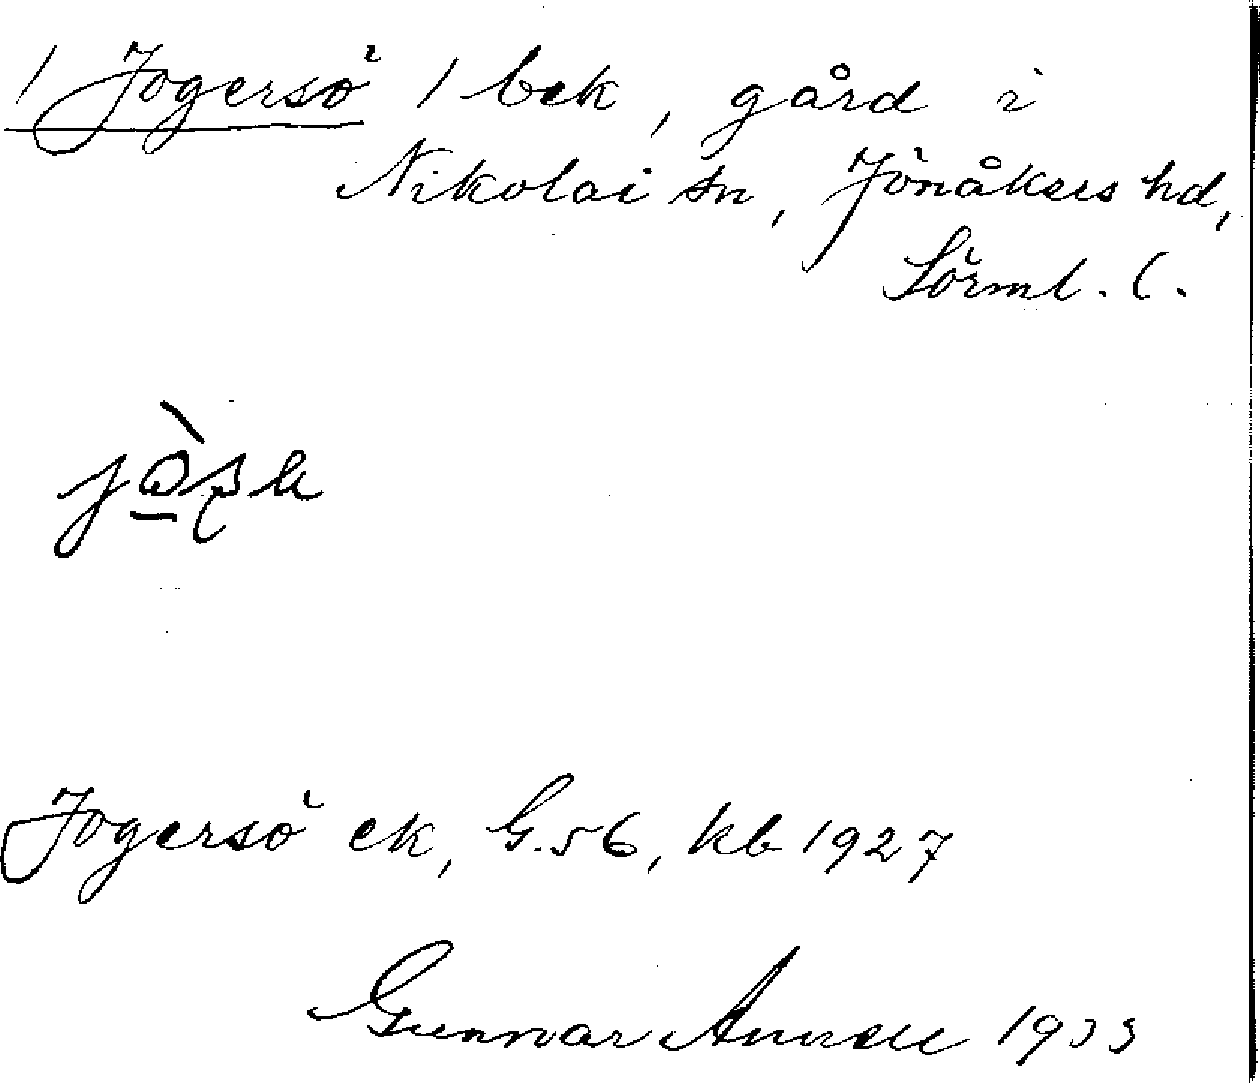 / Jogersö / bek, gård i
Nikolai sn, Jönåkers hd,
Sörml. l.
Jogersö ek, G. 56, kb 1927
Gunnar 1933